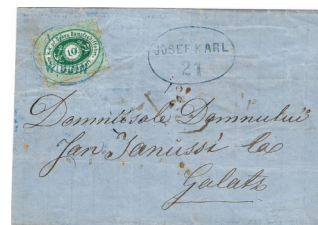 10
JOSEF KARL
21
Domniisale Domnului
Jan Janussi la
Galatz